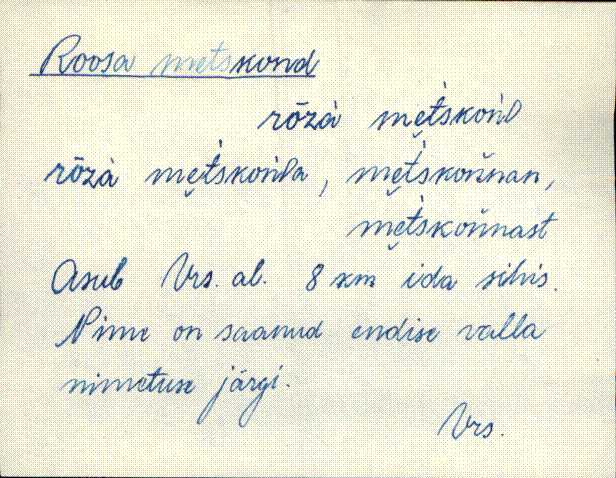 Roosa metskond
rōzà me̮t́skońD
rōzà me̮t́skońDa, me̮t́skońnan,
me̮t́skońnast
Asub Vrs. al. 8 km ida sihis.
Nime on saanud endise valla
nimetuse järgi.
Vrs.